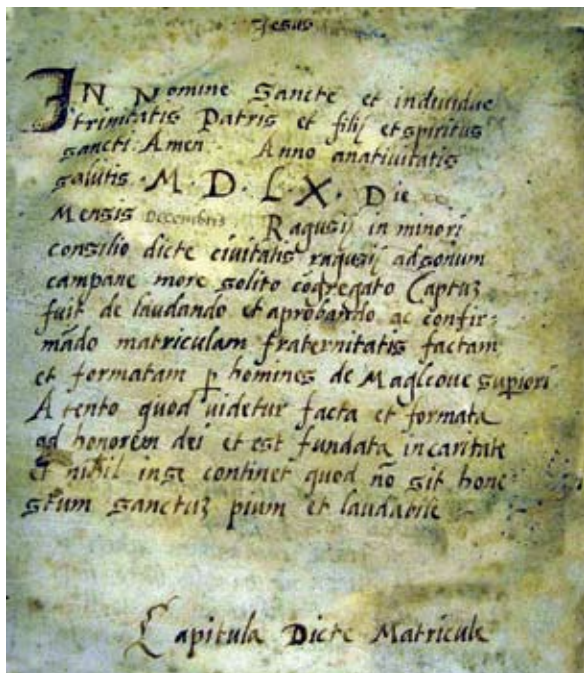 Jesus
IN Nomine Sancte et individue
trinitatis Patris et filij et spiritus
sancti Amen. Anno anativitatis
salutis · M · D · L · X · Die
Mensis Decembris Ragusij in minori
consilio dicte civitatis ragusij adsonum
campane more solito cōgregato Captuʒ
fuit de laudando et aprobando ac confir-
mādo matriculam fraternitatis factam
et formatam ꝑ homines de Superiori
Atento quod videtur facta et formata
ad honorem dei et est fundata incaritate
et nihil inse continet quod nō sit hone
stum sanctuʒ pium et laudabile
Capitula Dicte Matricule